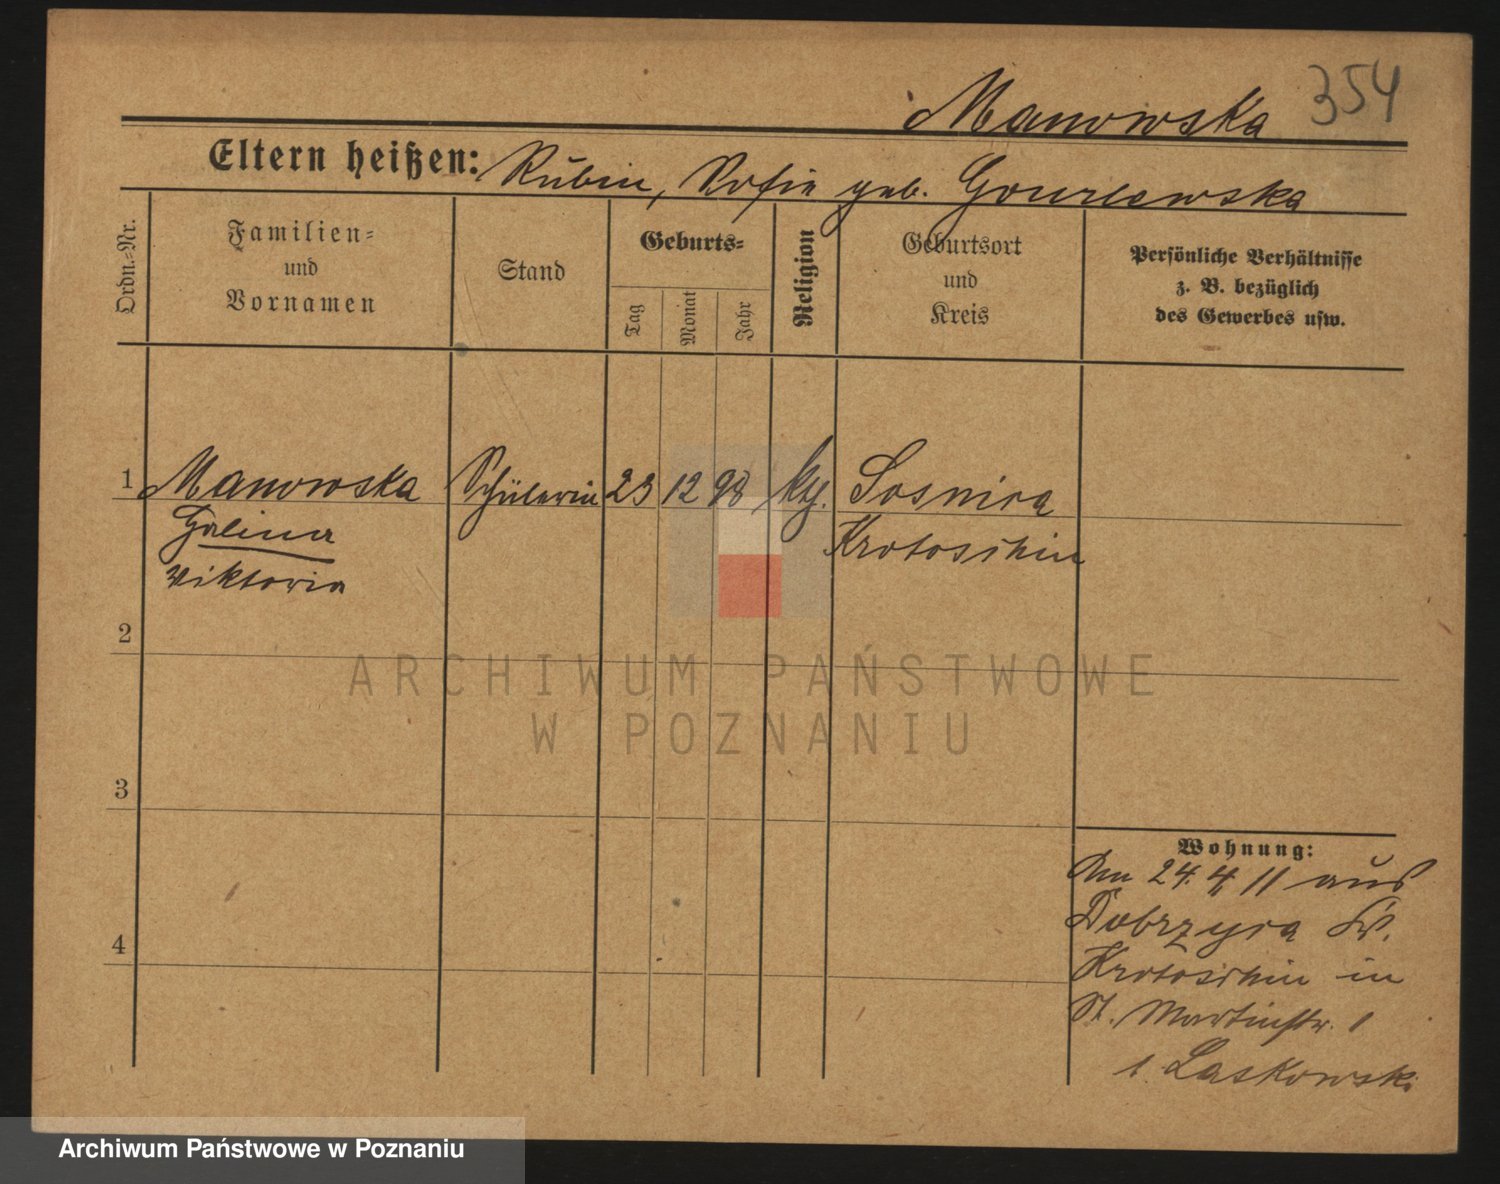 Manowska 354
Eltern heißen: Rubin, Sofie geb. Gorzewska
Ordn.-Nr.
Familien-
und
Vornamen
Stand
Geburts-
Tag
Monat
Jahr
Religion
Geburtsort
und
Kreis
Persönliche Verhältnisse
z. B. bezüglich
des Gewerbes usw.
1 Manowska Schülerin 23 12 98 kth. Sosnica
Halina Krotoschin
Viktoria
2
3
4
Wohnung:
Am 24. 4. 11 aus
Dobrzyca Kr.
Krotoschin in
St. Martinstr. 1
b. Laskowski
ARCHIWUM PAŃSTWOWE
W POZNANIU
Archiwum Państwowe w Poznaniu